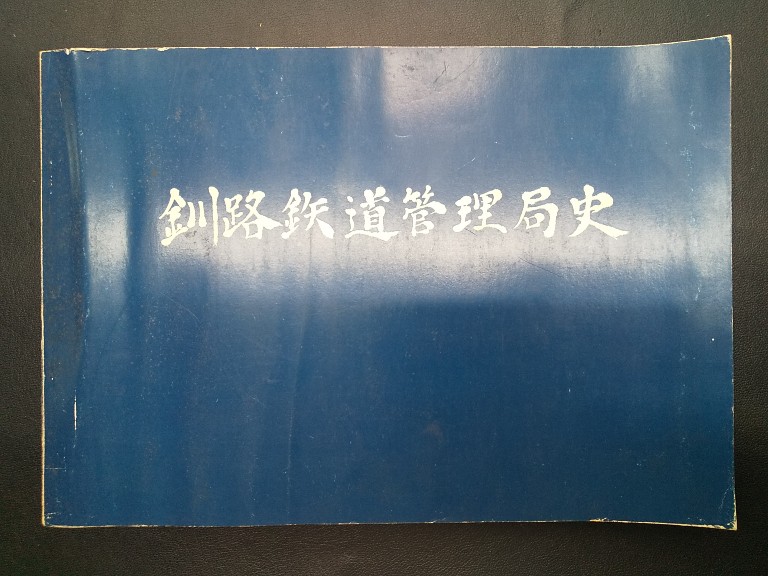 釧路鉄道管理局史